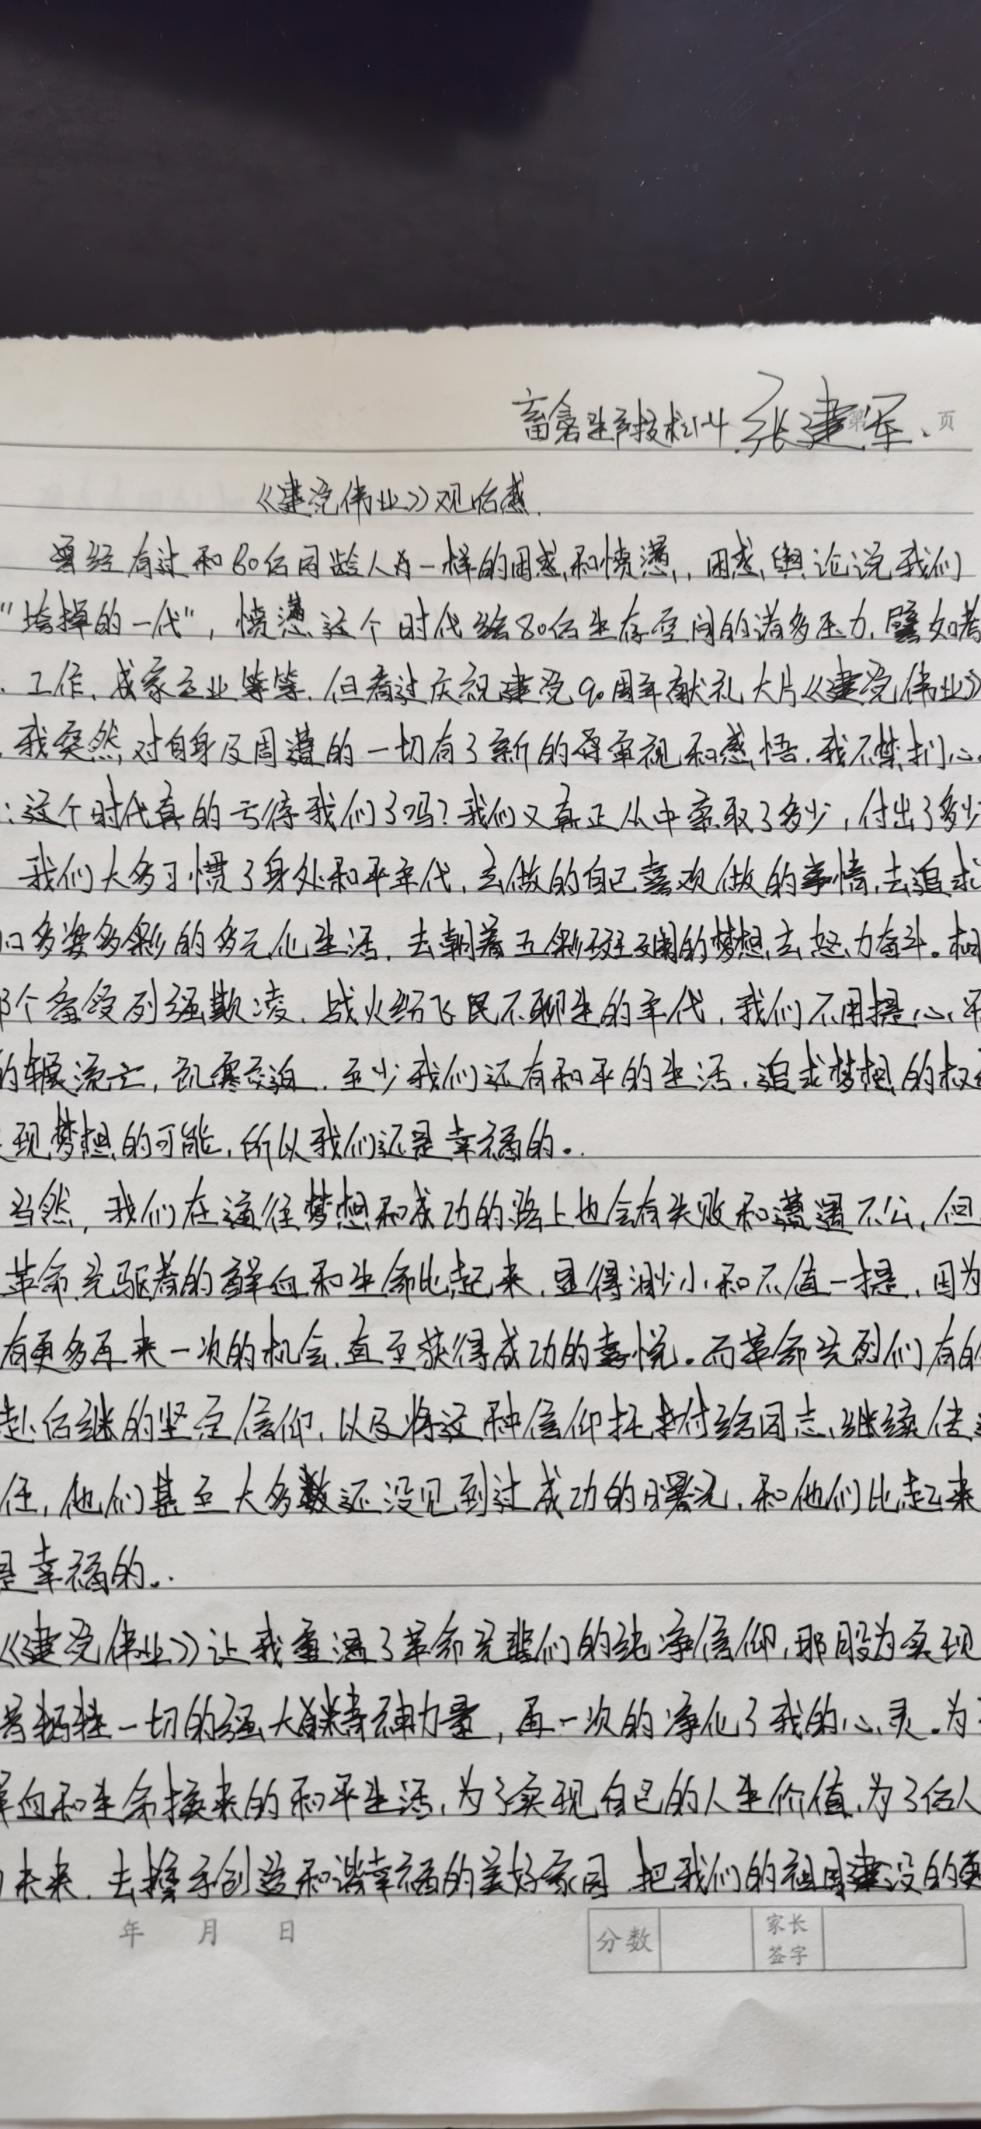 畜禽生产技术1-4 张建军 第 页
《建党伟业》观后感
曾经有过和80后同龄人为一样的困惑和愤懑，困惑舆论说我们
"垮掉的一代"，愤懑这个时代给80后生存空间的诸多压力，譬如考
、工作、成家立业等等。但看过庆祝建党90周年献礼大片《建党伟业》
，我突然对自身及周遭的一切有了新的审视和感悟。我不禁扪心
：这个时代真的亏待我们了吗？我们又真正从中索取了多少，付出了多少
我们大多习惯了身处和平年代，去做的自己喜欢做的事情，去追求
多姿多彩的多元化生活，去朝着五彩斑斓的梦想去努力奋斗。相
那个备受列强欺凌，战火纷飞民不聊生的年代，我们不用提心
的辗流亡，饥寒交迫。至少我们还有和平的生活，追求梦想的权
现梦想的可能，所以我们还是幸福的。
当然，我们在通往梦想和成功的路上也会有失败和遭遇不公，但
革命先驱者的鲜血和生命比起来，显得渺小和不值一提，因为
有更多再来一次的机会，直至获得成功的喜悦。而革命先烈们有的
赴后继的坚定信仰，以及将这种信仰托付给同志，继续传
任，他们甚至大多数还没见到过成功的曙光，和他们比起来
是幸福的。
《建党伟业》让我重温了革命先辈们的纯净信仰，那股为实现
牺牲一切的强大精神力量，再一次的净化了我的心灵。为
鲜血和生命换来的和平生活，为了实现自己的人生价值，为了后人
未来，去携手创造和谐幸福的美好家园，把我们的祖国建设的更
年 月 日 分数 家长签字